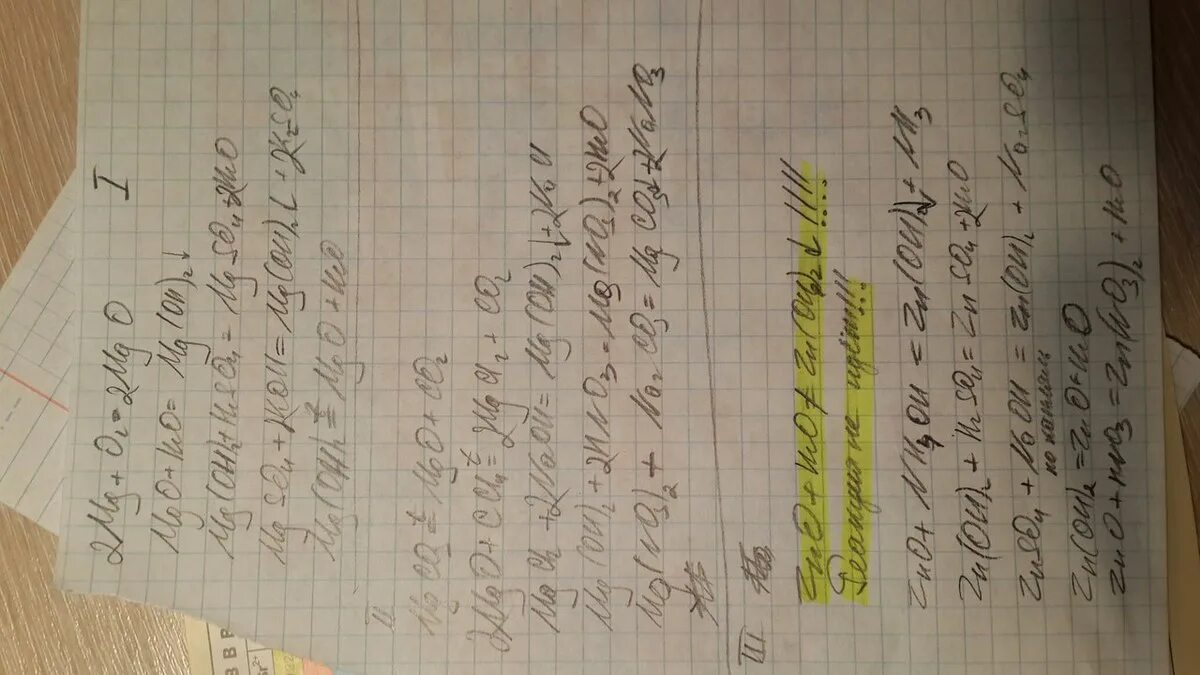 I
2Mg + O2 = 2MgO
MgO + H2O = Mg(OH)2↓
Mg(OH)2 + H2SO4 = MgSO4 + 2H2O
MgSO4 + 2KOH = Mg(OH)2↓ + 2K2SO4
Mg(OH)2 t= MgO + H2O
II
MgCO3 t= MgO + CO2
2MgO + CCl4 t= 2MgCl2 + CO2
MgCl2 + 2NaOH = Mg(OH)2↓ + 2NaCl
Mg(OH)2 + 2HNO3 = Mg(NO3)2 + 2H2O
Mg(NO3)2 + Na2CO3 = MgCO3↓ + 2NaNO3
III
ZnO + H2O ≠ Zn(OH)2↓ !!!!!
Реакция не идёт!!!
ZnO + NH4OH = Zn(OH)2↓ + NH3
Zn(OH)2 + H2SO4 = ZnSO4 + 2H2O
ZnSO4 + NaOH = Zn(OH)2 + Na2SO4
по каплям
Zn(OH)2 = ZnO + H2O
ZnO + HNO3 = Zn(NO3)2 + H2O